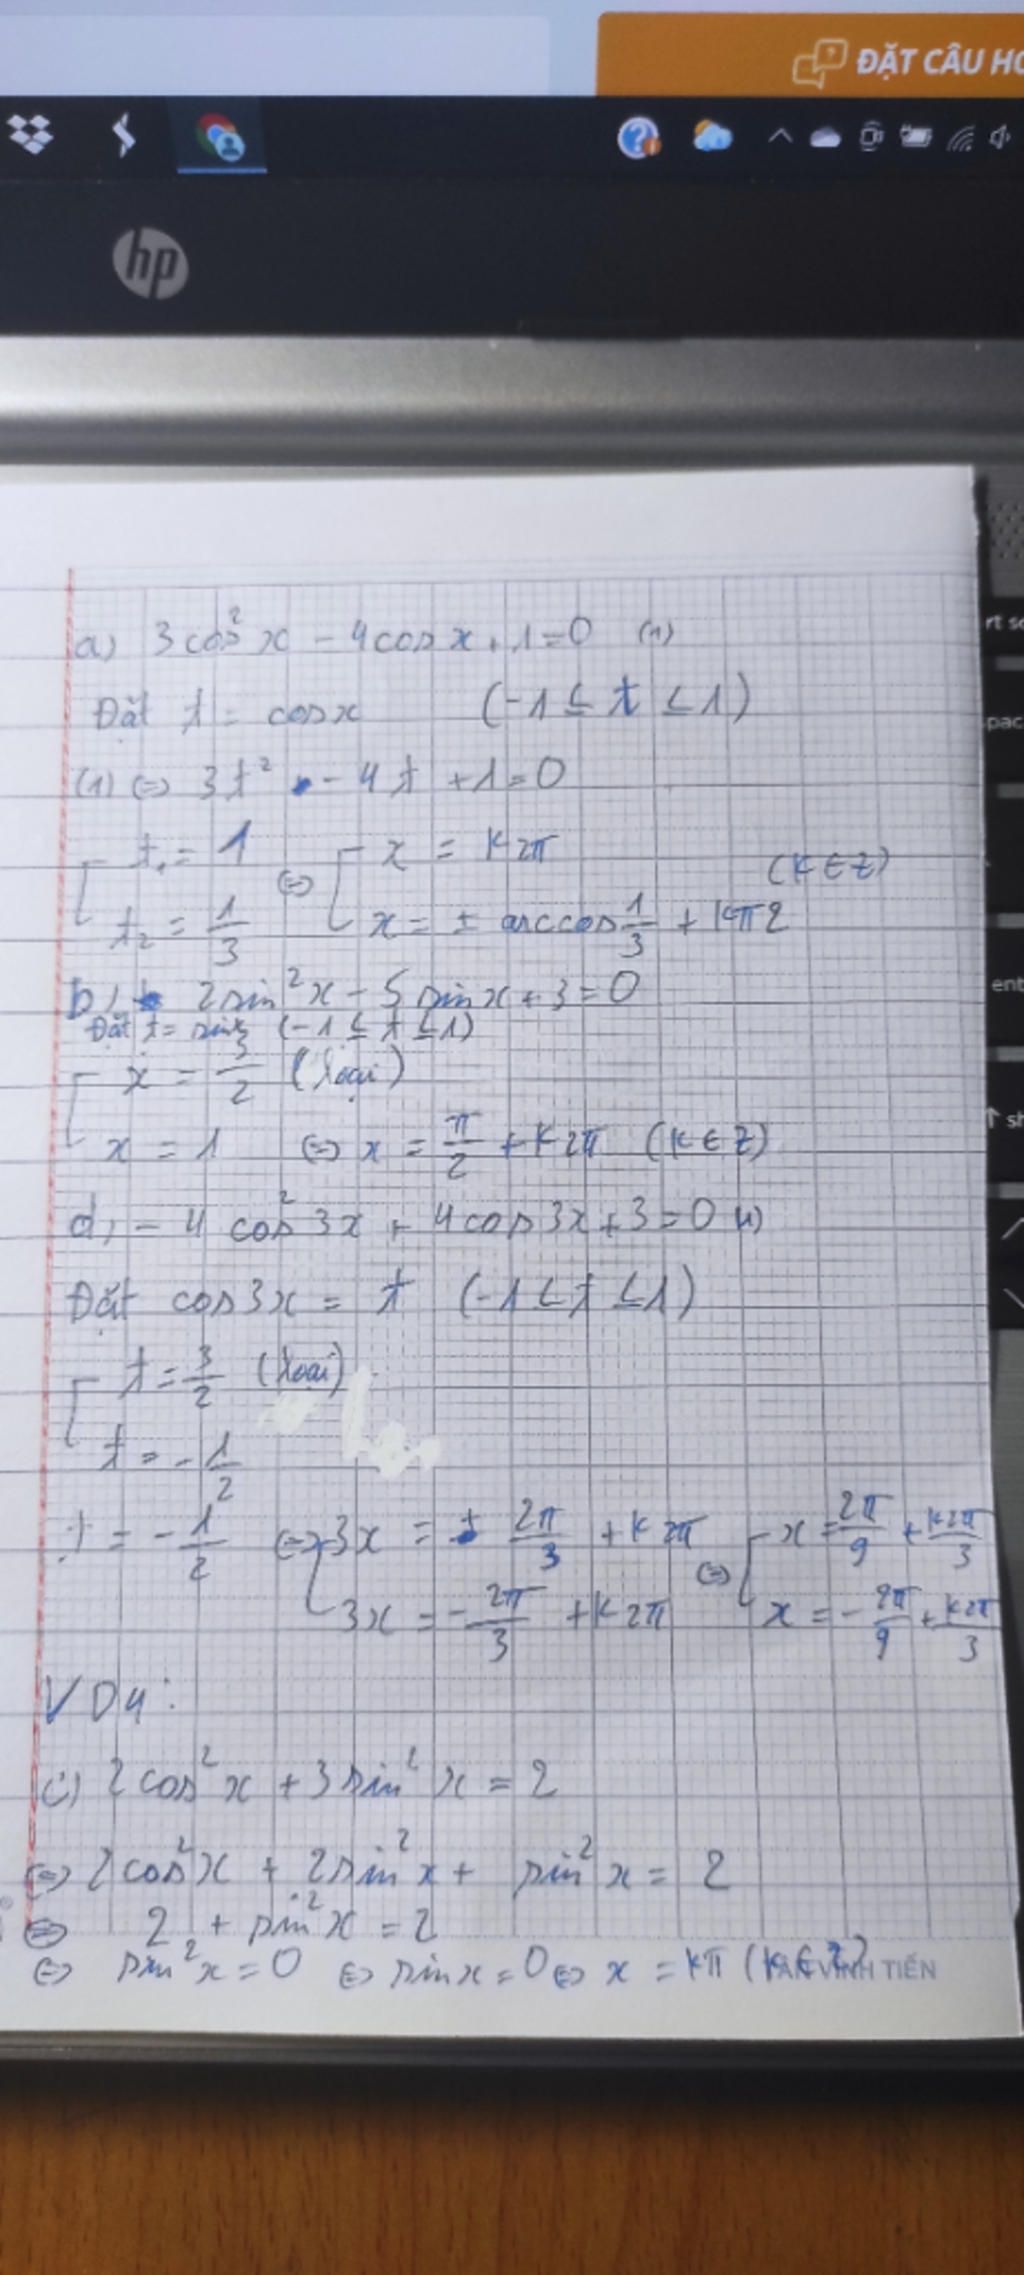 ĐẶT CÂU HO
hp
a) 3cos²x - 4cosx + 1 = 0 (1)
Đặt t = cosx (-1 ≤ t ≤ 1)
(1) ⇔ 3t² - 4t + 1 = 0
[ t₁ = 1 ⇔ [ x = k2π
(k ∈ Z)
t₂ = 1/3 x = ± arccos 1/3 + kπ2
b) 2sin²x - 5sinx + 3 = 0
Đặt t = sinx (-1 ≤ t ≤ 1)
[ x = 3/2 (loại)
x = 1 ⇔ x = π/2 + k2π (k ∈ Z)
d) - 4 cos²3x + 4cos3x + 3 = 0 (1)
Đặt cos3x = t (-1 ≤ t ≤ 1)
[ t = 3/2 (loại)
t = -1/2
t = -1/2 ⇔ [ 3x = 2π/3 + k2π ⇔ [ x = 2π/9 + k2π/3
3x = -2π/3 + k2π x = -2π/9 + k2π/3
VD4:
c) 2cos²x + 3sin²x = 2
⇔ 2cos²x + 2sin²x + sin²x = 2
⇔ 2 + sin²x = 2
⇔ sin²x = 0 ⇔ sinx = 0 ⇔ x = kπ (k ∈ Z)
VĨNH TIẾN
rt sc
pac
ent
↑ sh